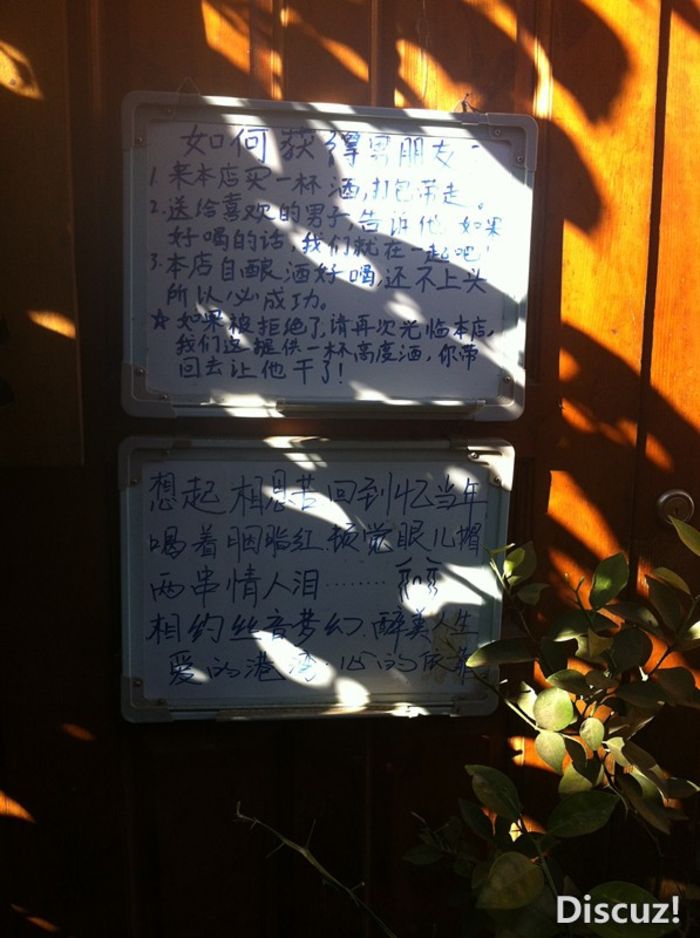 如何获得男朋友:
1 来本店买一杯酒,打包带走。
2.送给喜欢的男子,告诉他 如果
好喝的话,我们就在一起吧!
3.本店自酿酒好喝,还不上头
所以必成功。
☆如果被拒绝了,请再次光临本店,
我们这提供一杯高度酒,你带
回去让他干了!
想起相思苦.回到忆当年
喝着胭脂红.顿觉眼儿媚
两串情人泪········
相约丝音梦幻.醉美人生
爱的港湾·心的依靠
Discuz!